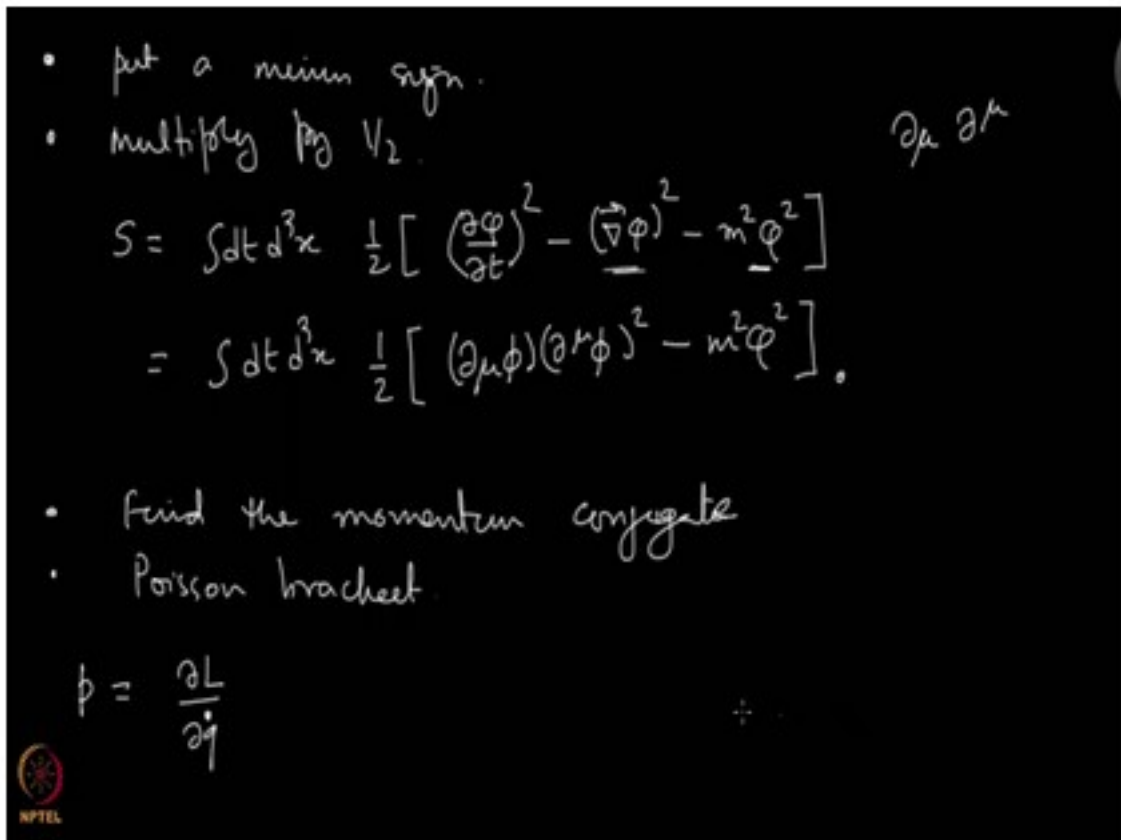 • put a minus sign.
• multiply by 1/2.
∂μ ∂^μ
S = ∫dt d³x 1/2 [ (∂φ/∂t)² − (∇⃗φ)² − m²φ² ]
= ∫dt d³x 1/2 [ (∂μϕ)(∂^μϕ)² − m²φ² ].
• Find the momentum conjugate
• Poisson bracket.
p = ∂L/∂q̇
NPTEL